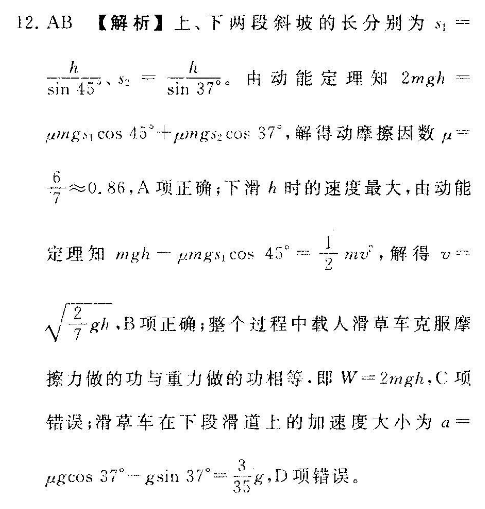 12. AB 【解析】上、下两段斜坡的长分别为 s₁ =
h/sin 45°、s₂ = h/sin 37°。由动能定理知 2mgh =
μmgs₁cos 45°+μmgs₂cos 37°,解得动摩擦因数 μ=
6/7≈0.86,A 项正确;下滑 h 时的速度最大,由动能
定理知 mgh − μmgs₁cos 45° = 1/2 mv²,解得 v =
√(2/7 gh),B项正确;整个过程中载人滑草车克服摩
擦力做的功与重力做的功相等,即 W=2mgh,C 项
错误;滑草车在下段滑道上的加速度大小为 a =
μgcos 37°−gsin 37°=3/35 g,D项错误。